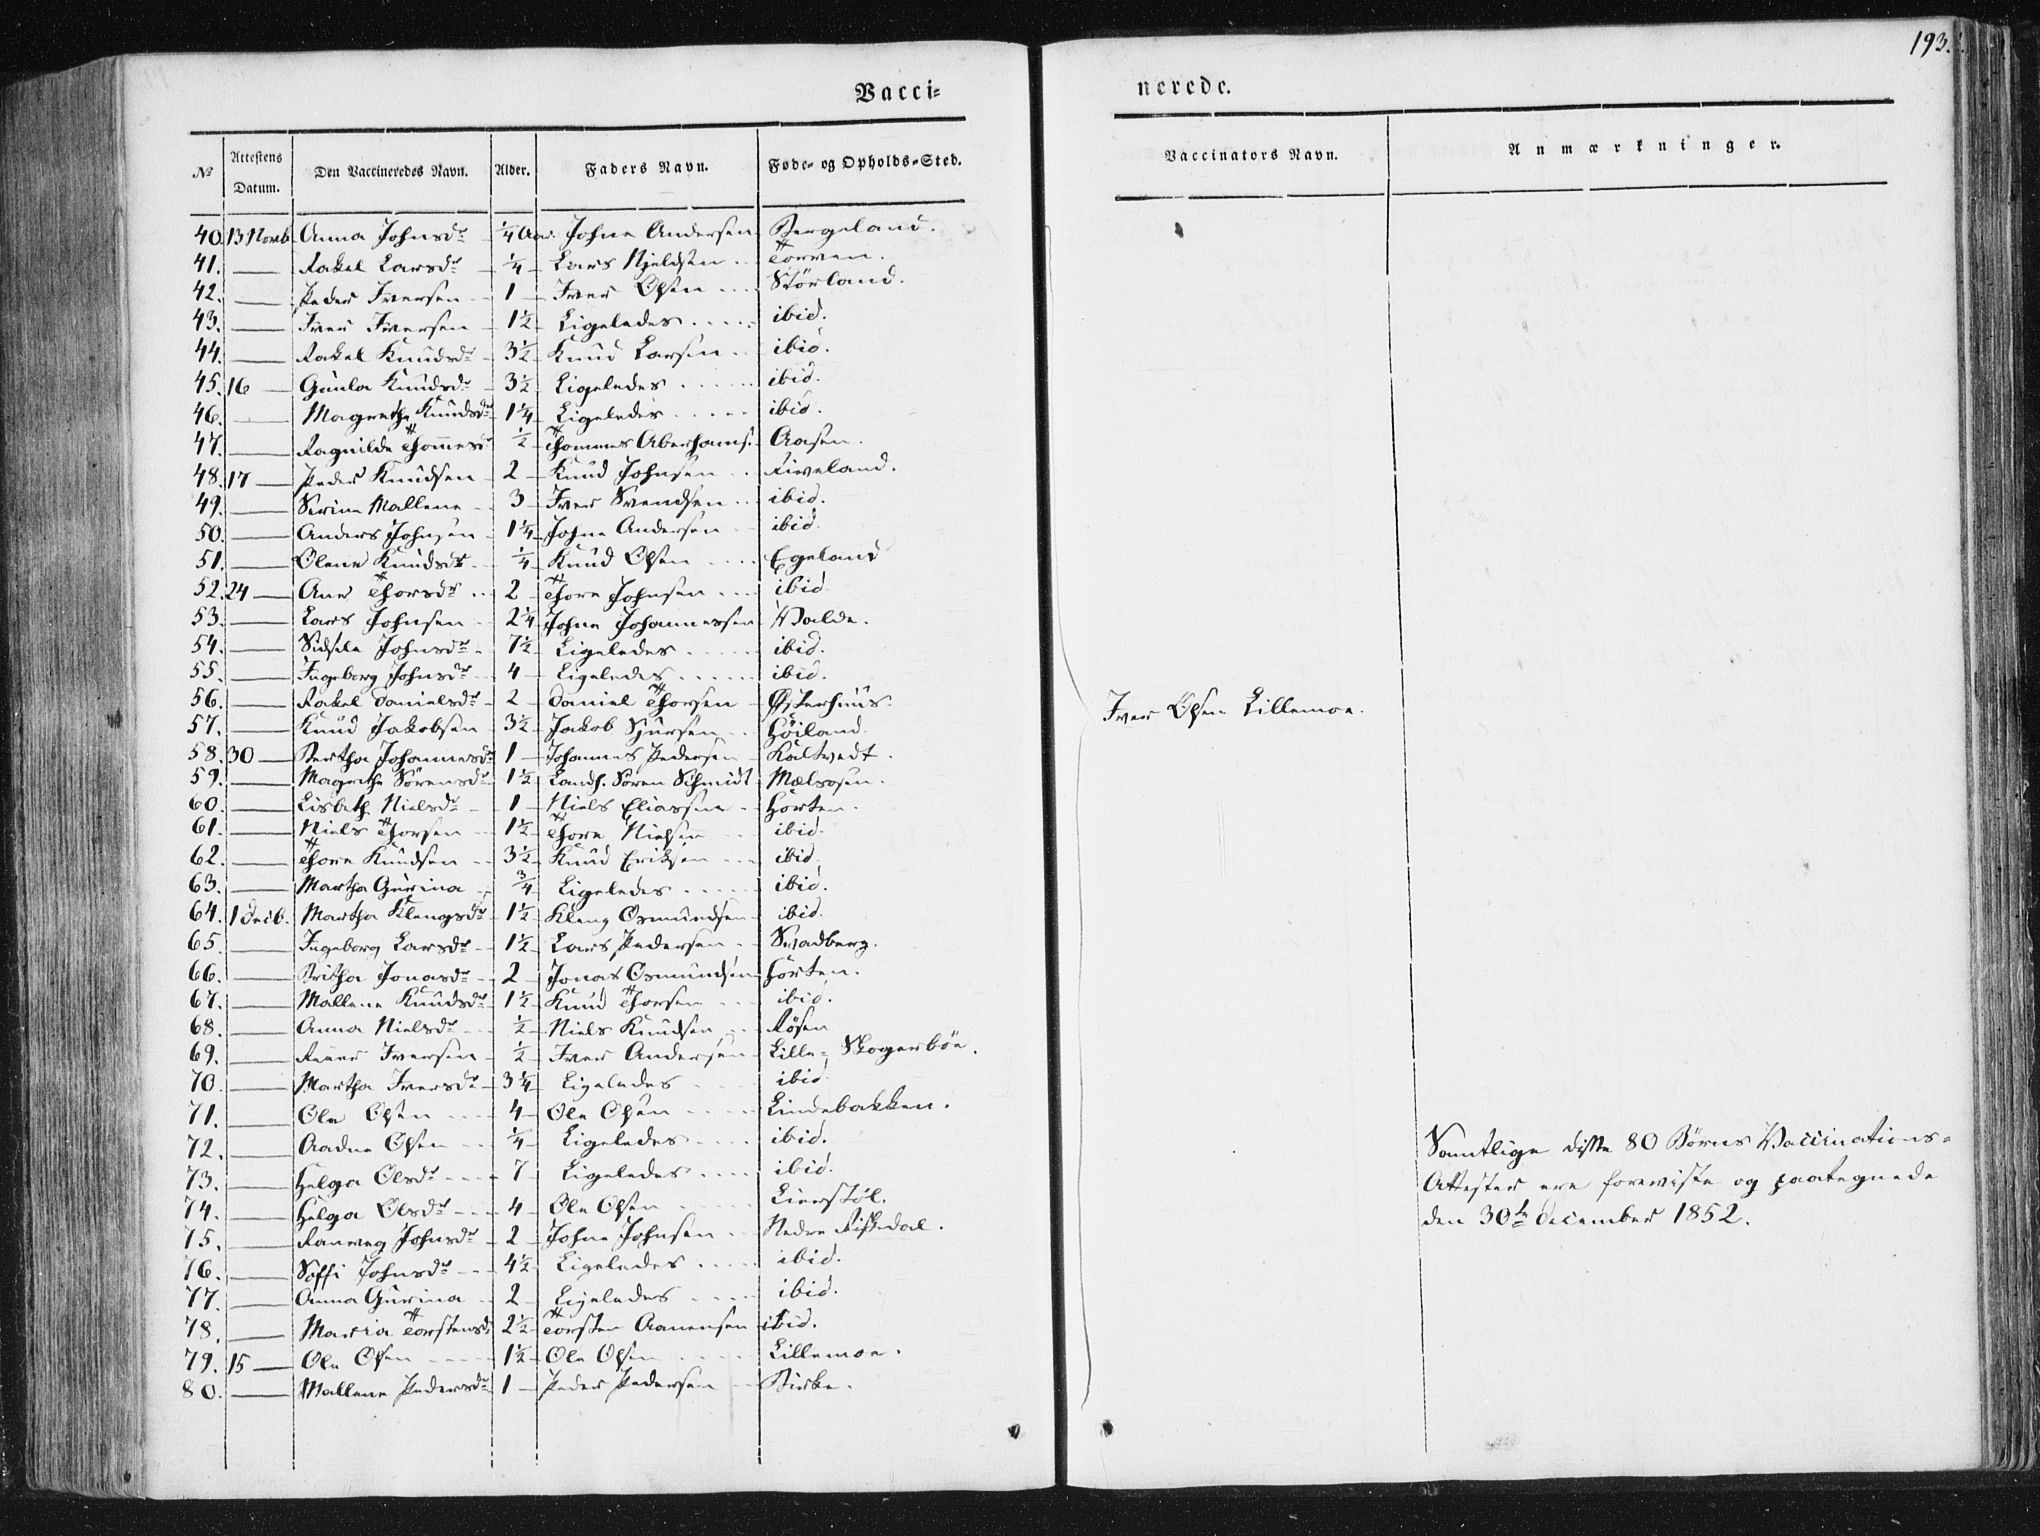 193.
Vacci-
nerede.
No Attestens Datum. Den Vaccineredes Navn. Alder. Faders Navn. Føde- og Opholds-Sted.
Vaccinators Navn. Anmærkninger.
40. 13 Novb. Anna Johnsdr 1/4 Aar. Johne Andersen Bergeland.
41. Rakel Larsdr 1/4 Lars Njeldsen Torven.
42. Peder Iversen 1 Iver Olsen Störland.
43. Iver Iversen 1 1/2 Ligeledes ibid.
44. Rakel Knudsdr 3 1/2 Knud Larsen ibid.
45. 16 Gunla Knudsdr 3 1/2 Ligeledes ibid.
46. Magrethe Knudsdr 1 1/4 Ligeledes ibid.
47. Ragnilde Thomesdr 1/2 Thommes Aberhams. Aasen.
48. 17 Peder Knudsen 2 Knud Johnsen Riveland.
49. Serine Mallene 3 Iver Svendsen ibid.
50. Anders Johnsen 1 1/4 Johne Andersen ibid.
51. Olene Knudsdr 1/4 Knud Olsen Egeland
52. 24 Ane Thorsdr 2 Thore Johnsen ibid
53. Lars Johnsen 2 1/4 Johne Johannessen Walde.
54. Sidsele Johnsdr 7 1/2 Ligeledes ibid.
55. Ingeborg Johnsdr 4 Ligeledes ibid.
56. Rakel Danielsdr 2 Daniel Thorsen Østerhuus
57. Knud Jakobsen 3 1/2 Jakob Sjursen Höiland.
58. 30 Bertha Johannesdr 1 Johannes Pedersen Kaltvedt.
59. Magrethe Sörensdr 1 1/2 Landh. Sören Schmidt Mælsosen.
60. Lisbeth Nielsdr 1 Niels Eliassen Hörten.
61. Niels Thorsen 1 1/2 Thore Nielsen ibid.
62. Thore Knudsen 3 1/2 Knud Eriksen ibid
63. Martha Gurina 3/4 Ligeledes ibid.
64. 1 Decb. Martha Klengsdr 1 1/2 Kleng Osmundsen ibid.
65. Ingeborg Larsdr 1 1/2 Lars Pedersen Svadberg.
66. Britha Jonasdr 2 Jonas Osmundsen Hörten.
67. Mallene Knudsdr 1 1/2 Knud Thorsen ibid.
68. Anna Nielsdr 1/2 Niels Knudsen Røsen
69. Iversen 1/2 Iver Andersen Lille- Skogerböe.
70. Martha Iversdr 3 1/4 Ligeledes ibid
71. Ole Olsen 4 Ole Olsen Lindebakken.
72. Aadne Olsen 1/4 Ligeledes ibid.
73. Helga Olsdr 7 Ligeledes ibid.
74. Helga Olsdr 4 Ole Olsen Lierstöl.
75. Ranveg Johnsdr 2 Johne Johnsen Nedre Refsdal.
76. Soffi Johnsdr 4 1/2 Ligeledes ibid.
77. Anna Gurina 2 Ligeledes ibid.
78. Maria Torstensdr 2 1/2 Torsten Aanensen ibid.
79. 15 Ole Olsen 1 1/2 Ole Olsen Lillemoe.
80. Mallene Pedersdr 1 Peder Pedersen Birke.
Iver Olsen Lillemoe.
Samtlige disse 80 Børns Vaccinations-
Attester ere foreviste og paategnede
den 30te December 1852.